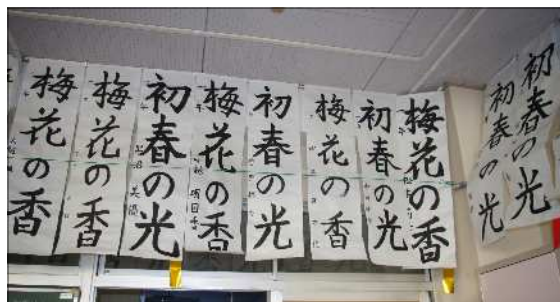 梅花の香
梅花の香
初春の光
梅花の香
初春の光
梅花の香
初春の光
梅花の香
初春の光
初春の光